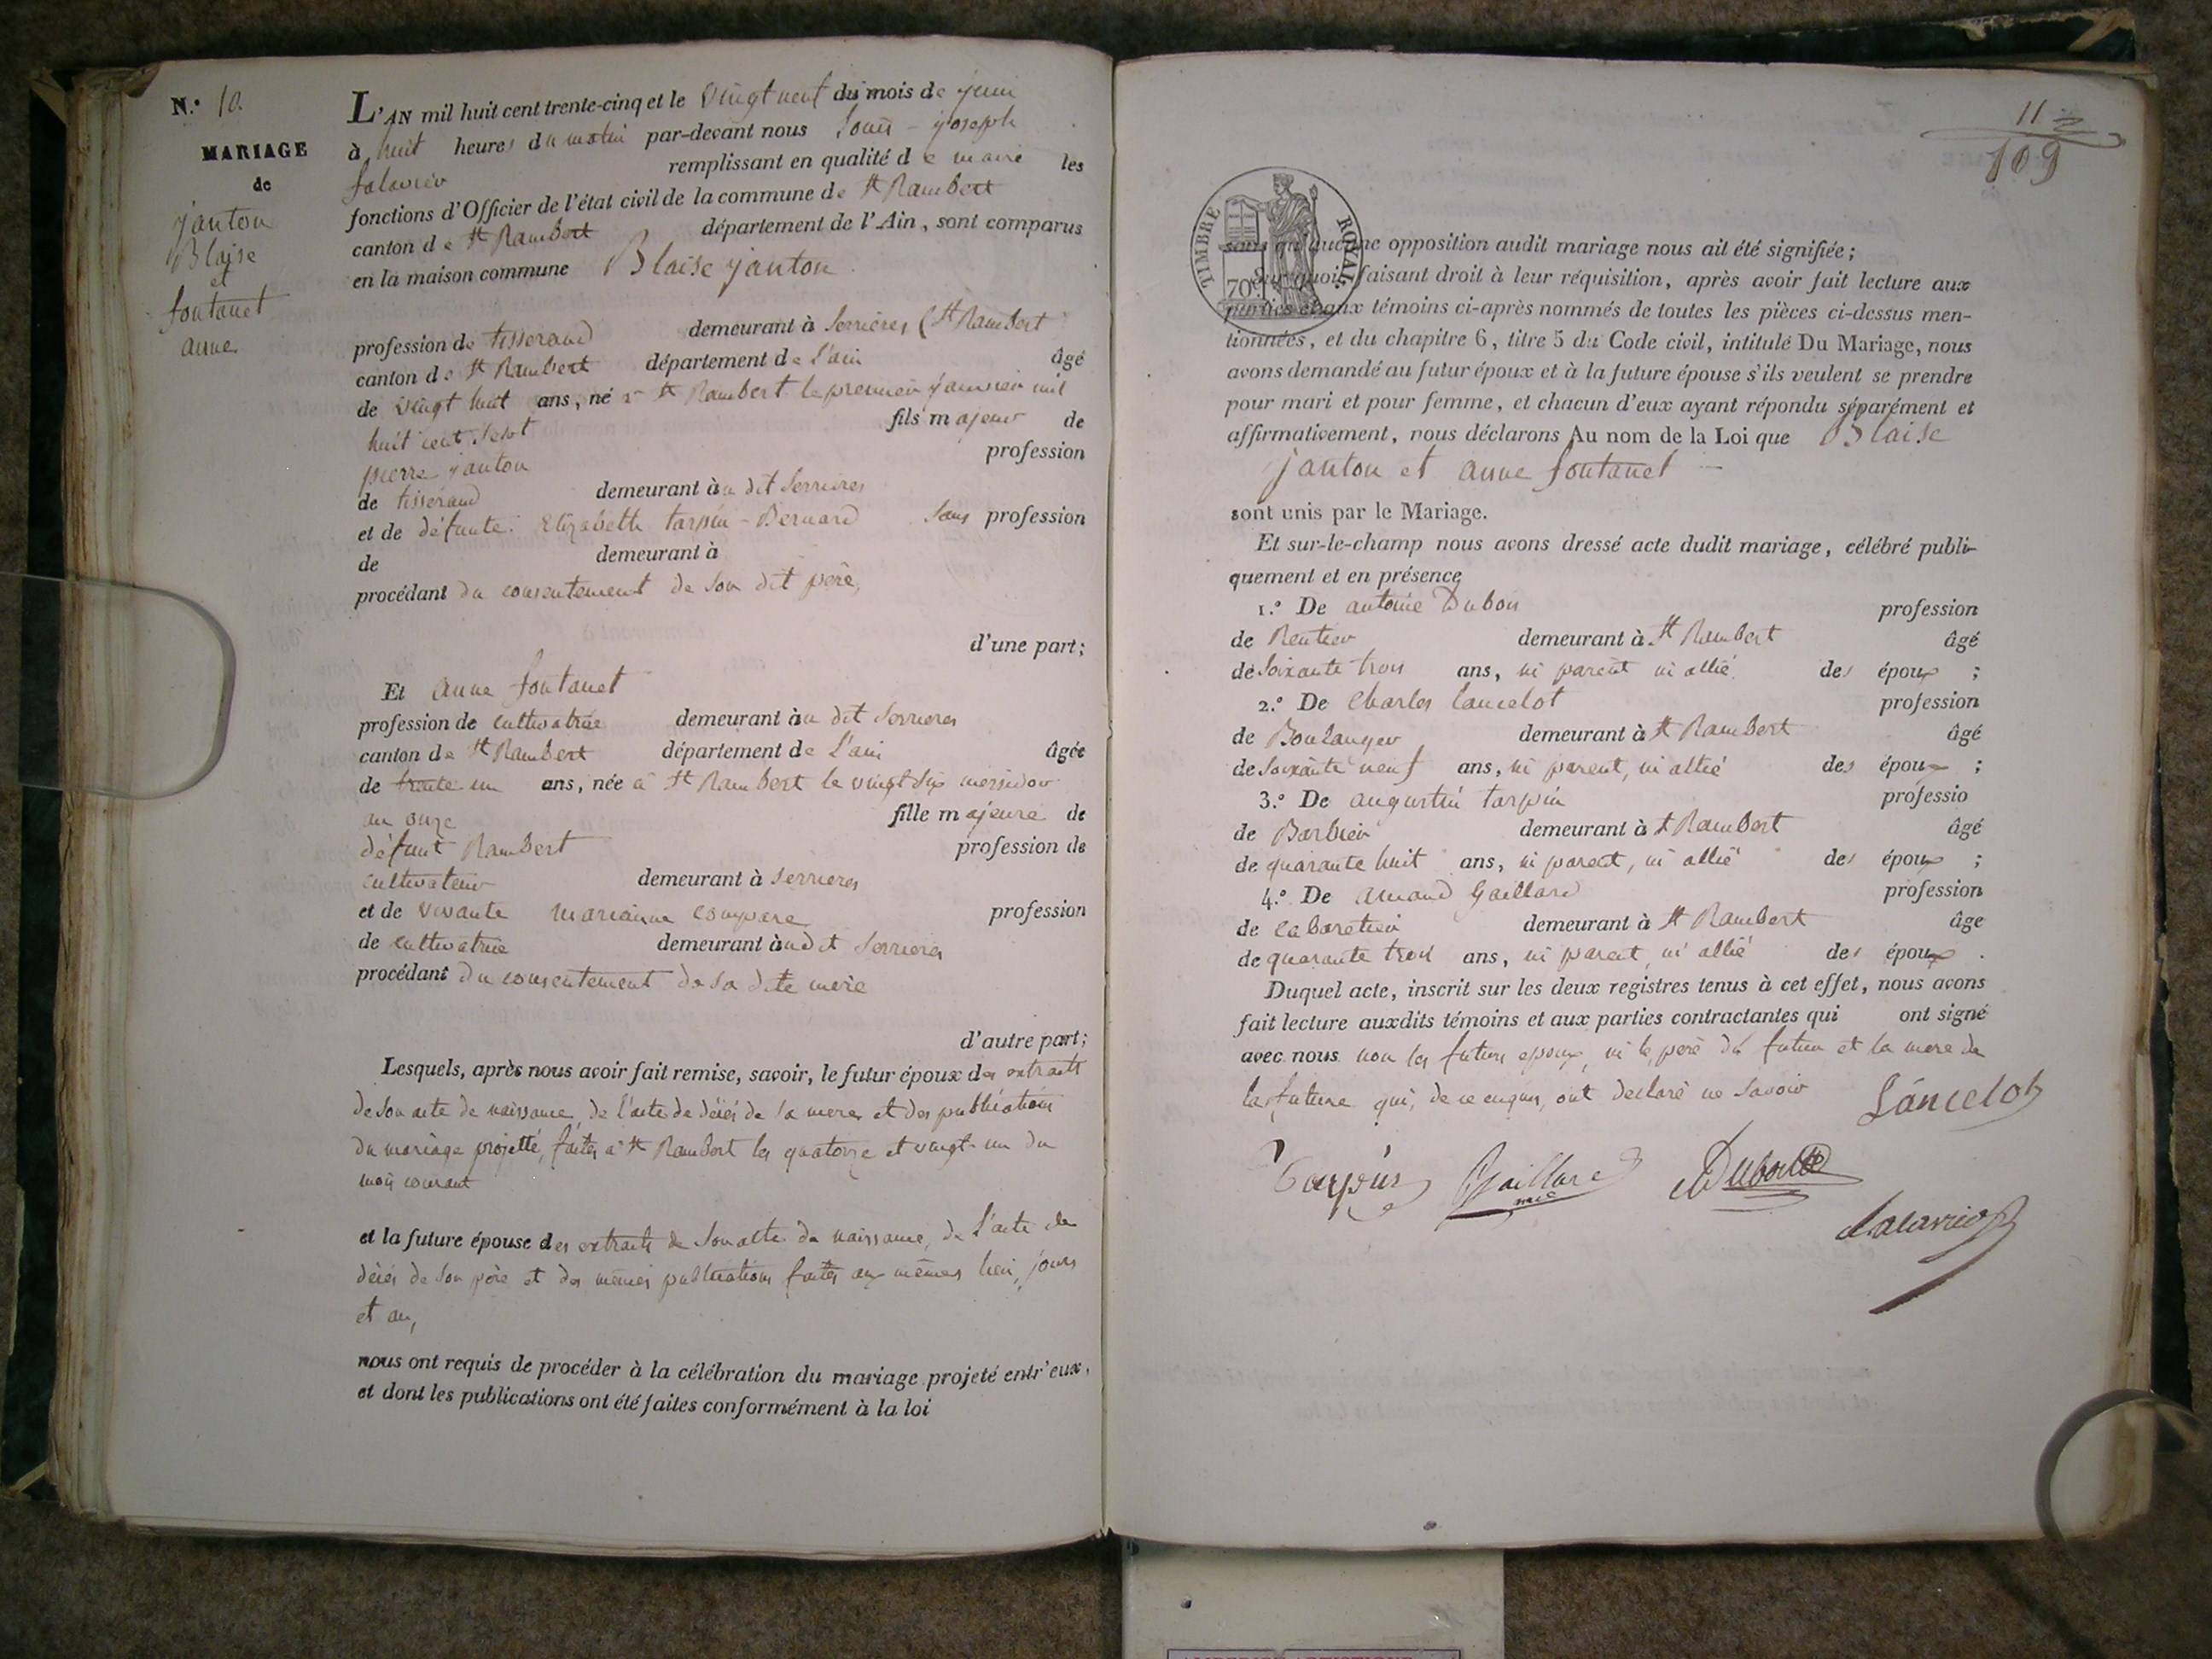 N.° 10.
MARIAGE
de
janton
Blaise
et
fontanet
anne
L'AN mil huit cent trente-cinq et le vingt neuf du mois de juin
à huit heures du matin par-devant nous Louis - joseph
falavier remplissant en qualité de maire les
fonctions d'Officier de l'état civil de la commune de St Rambert
canton de St Rambert département de l'Ain, sont comparus
en la maison commune Blaise janton
profession de tisserand demeurant à Serrières (St Rambert
canton de St Rambert département de l'ain âgé
de vingt huit ans, né à St Rambert le premier janvier mil
huit cent sept fils majeur de
pierre janton profession
de tisserand demeurant au dit Serrieres
et de défunte Elizabeth tarpin - Bernard sans profession
de demeurant à
procédant du consentement de son dit père,
d'une part;
Et anne fontanet
profession de cultivatrice demeurant au dit Serrieres
canton de St Rambert département de L'ain âgée
de trente un ans, née à St Rambert le vingt six messidor
an onze fille majeure de
défunt Rambert profession de
cultivateur demeurant à Serrieres
et de vivante marianne compare profession
de cultivatrice demeurant audit Serrieres
procédant du consentement de sa dite mère
d'autre part;
Lesquels, après nous avoir fait remise, savoir, le futur époux des extraits
de son acte de naissance, de l'acte de décés de sa mere et des publications
du mariage projetté, faites à St Rambert les quatorze et vingt-un du
mois courant
et la future épouse des extraits de son acte de naissance, de L'acte de
décés de son père et des mêmes publications faites aux mêmes lieu, jours
et an,
nous ont requis de procéder à la célébration du mariage projeté entr'eux,
et dont les publications ont été faites conformément à la loi
11
109
TIMBRE ROYAL
70c
sans qu'aucune opposition audit mariage nous ait été signifiée;
Sur quoi, faisant droit à leur réquisition, après avoir fait lecture aux
parties et aux témoins ci-après nommés de toutes les pièces ci-dessus men-
tionnées, et du chapitre 6, titre 5 du Code civil, intitulé Du Mariage, nous
avons demandé au futur époux et à la future épouse s'ils veulent se prendre
pour mari et pour femme, et chacun d'eux ayant répondu séparément et
affirmativement, nous déclarons Au nom de la Loi que Blaise
janton et anne fontanet
sont unis par le Mariage.
Et sur-le-champ nous avons dressé acte dudit mariage, célébré publi-
quement et en présence
1.° De antoine Dubou profession
de Rentier demeurant à St Rambert âgé
de soixante trois ans, ni parent ni allié des époux ;
2.° De Charles Lancelot profession
de Boulanger demeurant à St Rambert âgé
de soixante neuf ans, ni parent, ni allié des époux ;
3.° De augustin tarpin professio
de Barbier demeurant à St Rambert âgé
de quarante huit ans, ni parent, ni allié des époux ;
4.° De amand Gaillard profession
de cabaretier demeurant à St Rambert âge
de quarante trois ans, ni parent, ni allié des époux .
Duquel acte, inscrit sur les deux registres tenus à cet effet, nous avons
fait lecture auxdits témoins et aux parties contractantes qui ont signé
avec nous non les futurs epoux, ni le père du futur et la mere de
la future qui, de ce enquis, ont declaré ne savoir Lancelot
Tarpin Gaillard